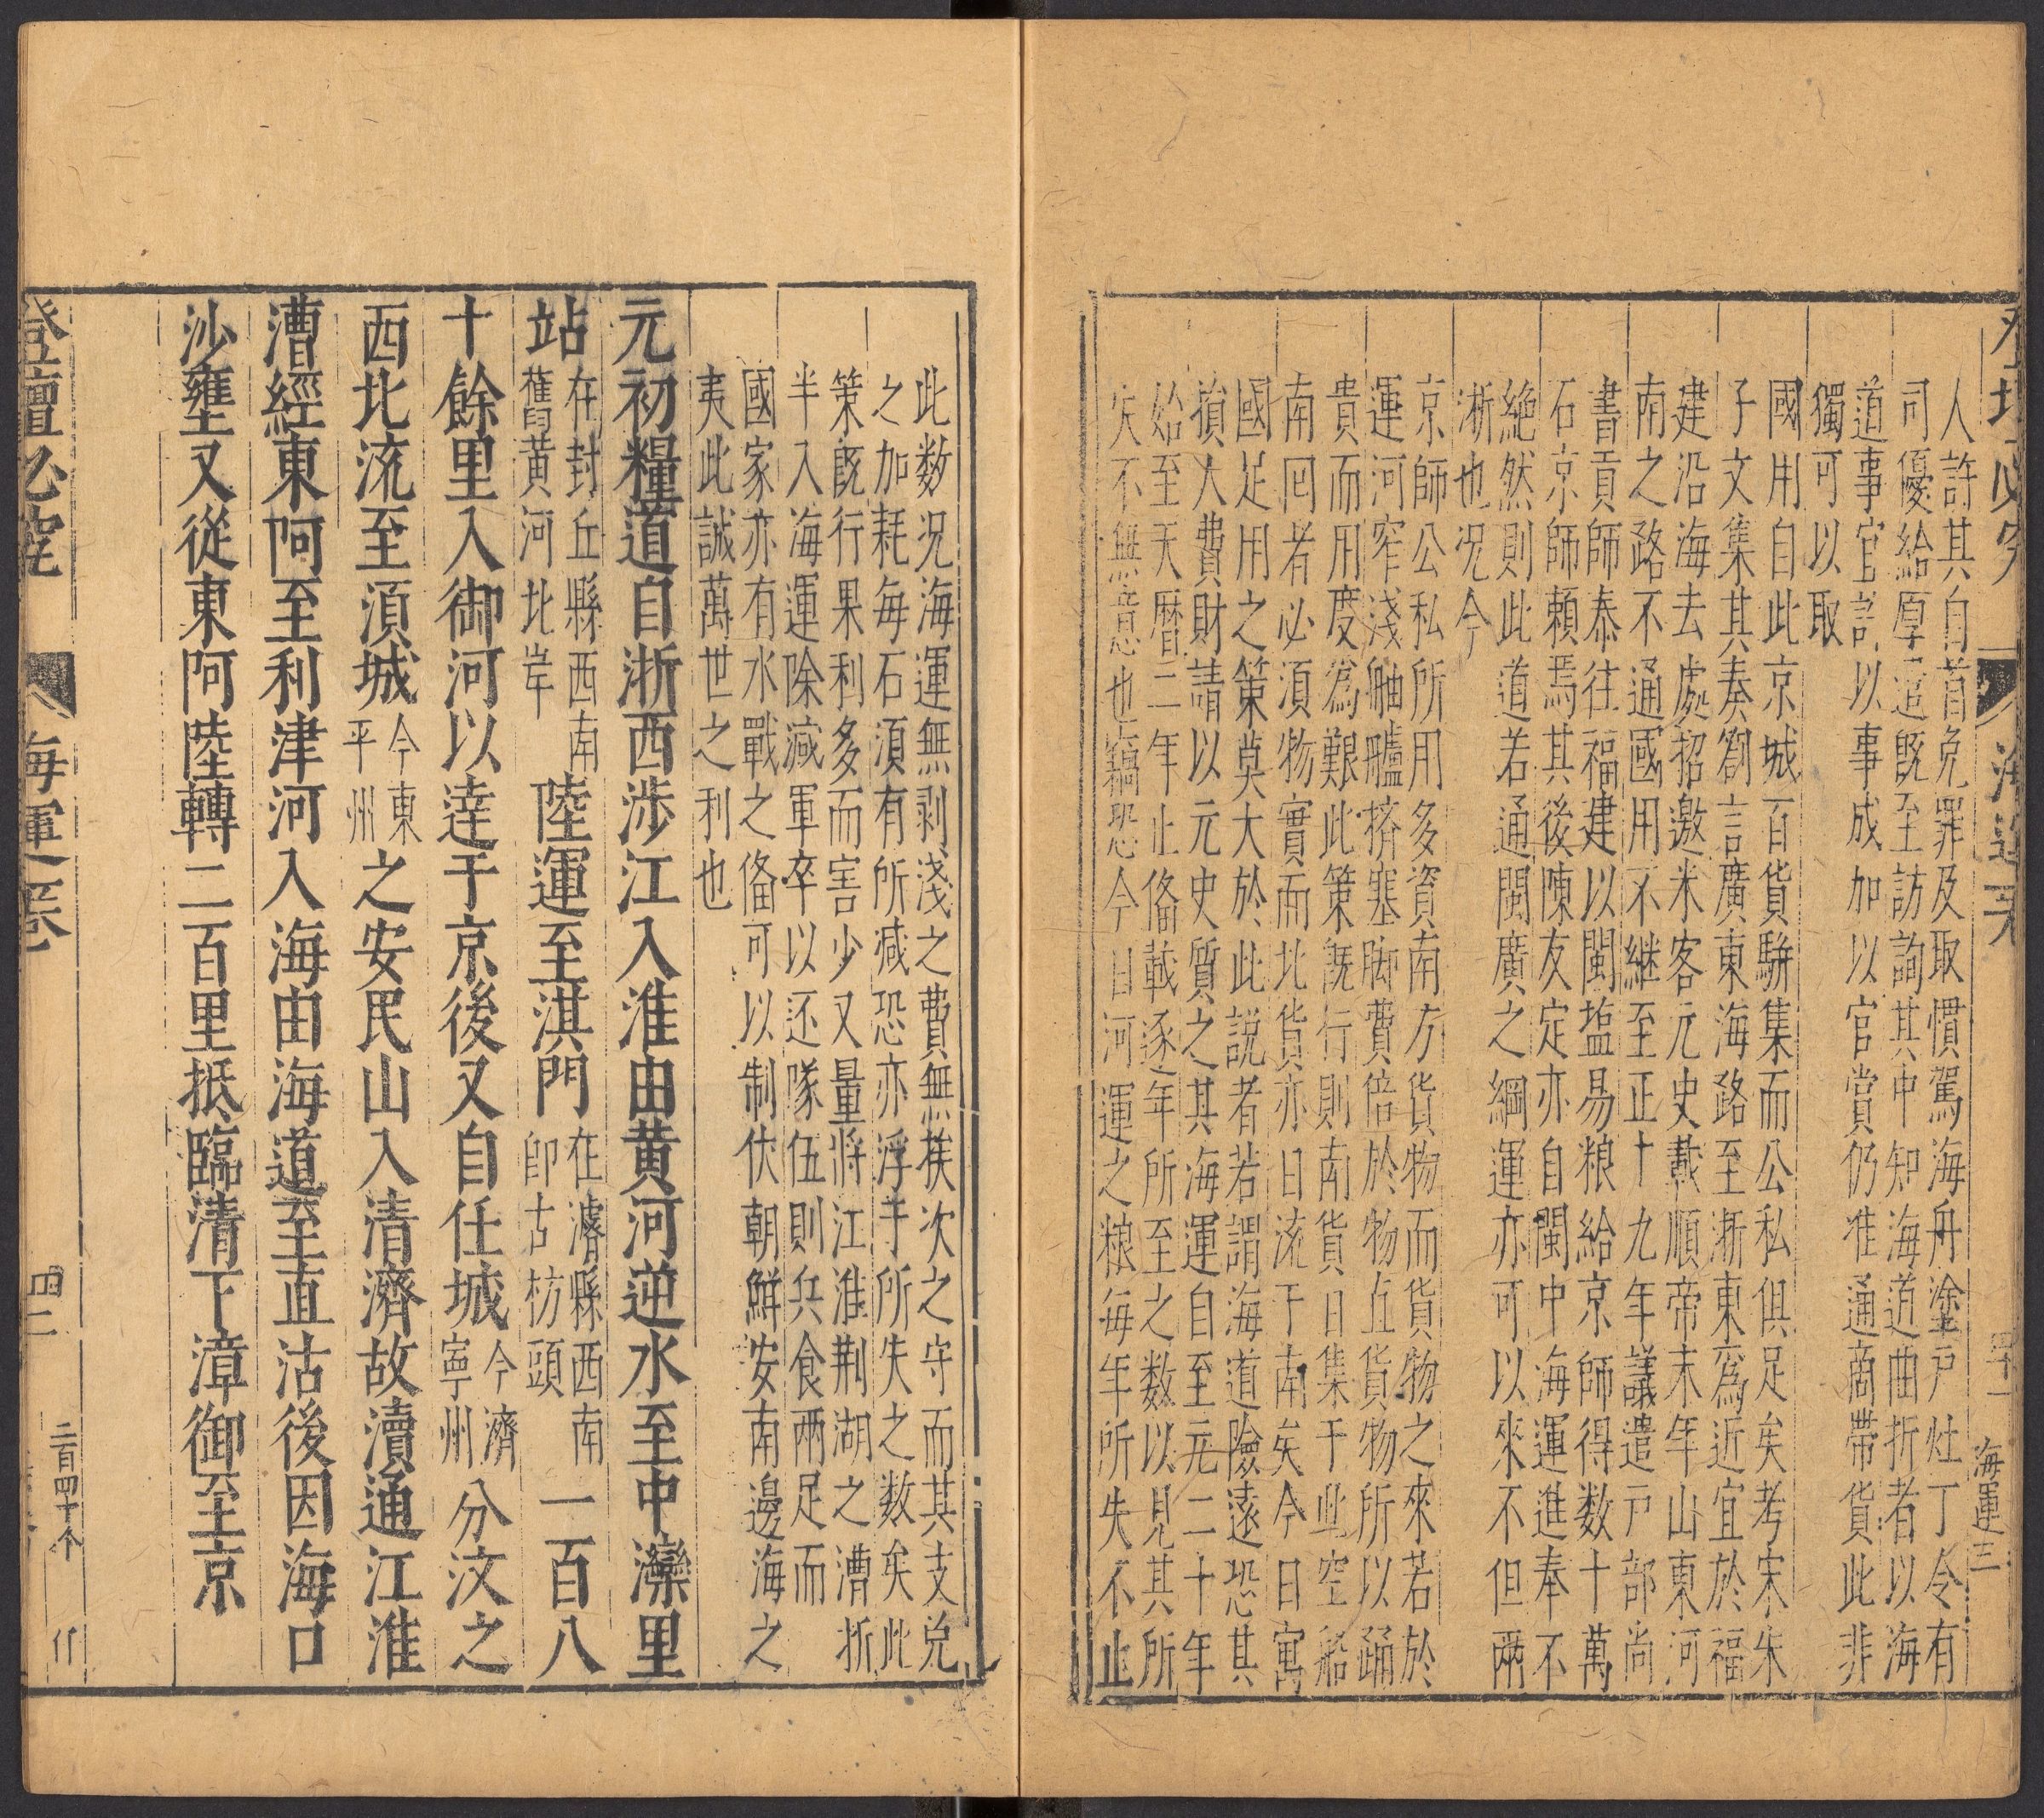 海運三
人許其自首免罪及取慣駕海舟塗戶灶丁令有
司優給厚遣既至訪詢其中知海道曲折者以海
道事官訖以事成加以官賞仍准通商帶貨此非
獨可以取
國用自此京城百貨駢集而公私俱足矣考宋朱
子文集其奏劄言廣東海路至浙東為近宜於福
建沿海去處招邀米客元史載順帝末年山東河
南之路不通國用不継至正十九年議遣戶部尚
書貢師泰往福建以閩塩易粮給京師得数十萬
石京師賴焉其後陳友定亦自閩中海運進奉不
絶然則此道若通閩廣之綱運亦可以來不但兩
浙也况今
京師公私所用多資南方貨物而貨物之來若於
運河窄淺舳艫擠塞脚費倍於物直貨物所以踊
貴而用度為艱此策既行則南貨日集于此空船
南回者必須物實而北貨亦日流于南矣今日寓
國足用之策莫大於此説者若謂海道險遠恐其
損人費財請以元史質之其海運自至元二十年
始至天曆二年止俻載逐年所至之数以見其所
失不無意也竊恐今日河運之粮每年所失不止
此数况海運無剥淺之費無挨次之守而其支兑
之加耗每石須有所减恐亦浮于所失之数矣此
策既行果利多而害少又量將江淮荆湖之漕折
半入海運除减軍卒以还隊伍則兵食兩足而
國家亦有水戰之俻可以制伏朝鮮安南邊海之
夷此誠萬世之利也
元初糧道自浙西涉江入淮由黃河逆水至中灤里
站在封丘縣西南舊黃河北岸陸運至淇門在濬縣西南即古枋頭一百八
十餘里入御河以逹于京後又自任城今濟寧州分汶之
西北流至須城今東平州之安民山入清濟故瀆通江淮
漕經東阿至利津河入海由海道至直沽後因海口
沙壅又從東阿陸轉二百里抵臨清下漳御至京
登壇必究 海運一卷 四二 二百四十个